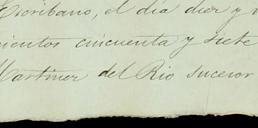 Escribano, el dia diez y
cientos cincuenta y siete
Martinez del Rio sucesor